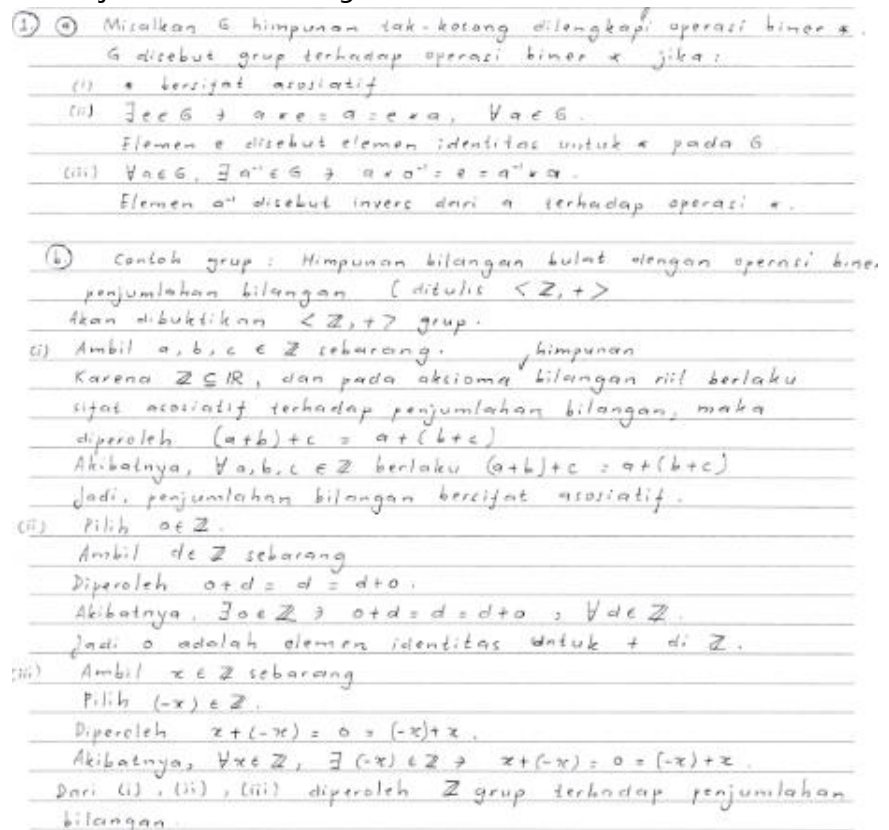 ① ⓐ Misalkan G himpunan tak-kosong dilengkapi operasi biner *.
G disebut grup terhadap operasi biner * jika :
(i) * bersifat asosiatif
(ii) ∃ e ∈ G ∋ a * e = a = e * a, ∀ a ∈ G.
Elemen e disebut elemen identitas untuk * pada G
(iii) ∀ a ∈ G, ∃ a⁻¹ ∈ G ∋ a * a⁻¹ = e = a⁻¹ * a.
Elemen a⁻¹ disebut invers dari a terhadap operasi *.
ⓑ Contoh grup : Himpunan bilangan bulat dengan operasi biner
penjumlahan bilangan ( ditulis < ℤ, + >
Akan dibuktikan < ℤ, + > grup.
(i) Ambil a, b, c ∈ ℤ sebarang.
himpunan
Karena ℤ ⊆ ℝ, dan pada aksioma bilangan riil berlaku
sifat asosiatif terhadap penjumlahan bilangan, maka
diperoleh (a+b)+c = a+(b+c)
Akibatnya, ∀ a, b, c ∈ ℤ berlaku (a+b)+c = a+(b+c)
Jadi, penjumlahan bilangan bersifat asosiatif.
(ii) Pilih 0 ∈ ℤ.
Ambil d ∈ ℤ sebarang
Diperoleh 0+d = d = d+0.
Akibatnya, ∃ 0 ∈ ℤ ∋ 0+d = d = d+0 , ∀ d ∈ ℤ.
Jadi 0 adalah elemen identitas untuk + di ℤ.
(iii) Ambil x ∈ ℤ sebarang
Pilih (-x) ∈ ℤ.
Diperoleh x+(-x) = 0 = (-x)+x.
Akibatnya, ∀ x ∈ ℤ, ∃ (-x) ∈ ℤ ∋ x+(-x) = 0 = (-x)+x.
Dari (i), (ii), (iii) diperoleh ℤ grup terhadap penjumlahan
bilangan.